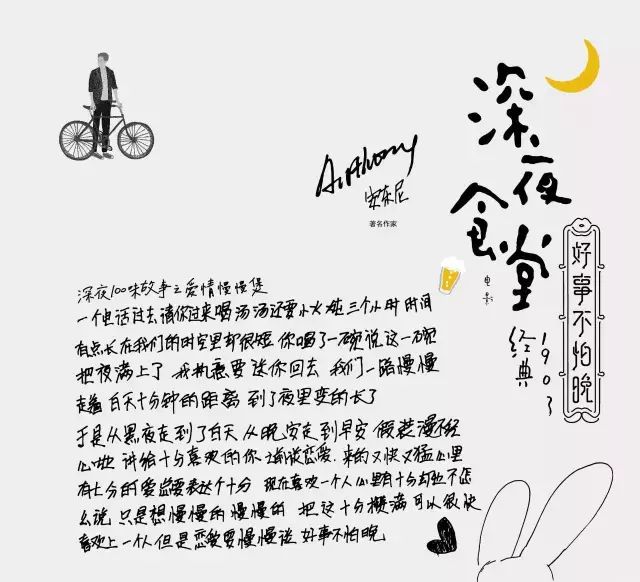 深夜食堂
电影
经典1903
好事不怕晚
Anthony
安东尼
著名作家
深夜100味故事之爱情慢慢煲
一个电话过去请你过来喝汤 汤还要小火炖三个小时 时间
有点长 在我们的时空里却很短 你喝了一碗说这一碗
把夜满上了 我执意要送你回去 我们一路慢慢
走着 白天十分钟的距离 到了夜里变的长了
于是从黑夜走到了白天 从晚安走到早安 假装漫不经
心地 讲给十分喜欢的你 恋爱 来的又快又猛 心里
有七分的爱总要表达个十分 现在喜欢一个人 心里有十分却也不怎
么说 只是想慢慢的 慢慢的 把这十分攒满 可以很快
喜欢上一个人 但是恋爱要慢慢谈 好事不怕晚